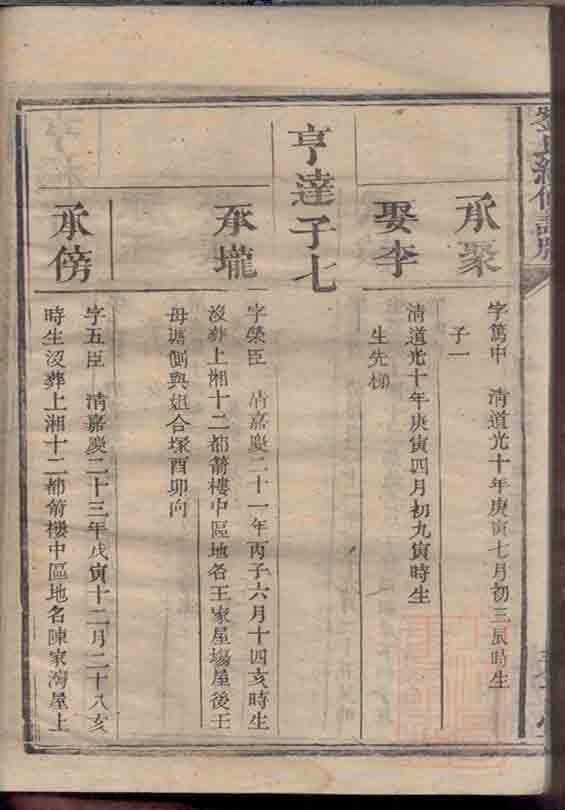 承聚
字篤中 清道光十年庚寅七月初三辰時生
子一
娶李
清道光十年庚寅四月初九寅時生
生先梯
亨達子七
承壠
字榮臣 清嘉慶二十一年丙子六月十四亥時生
沒葬上湘十二都箭樓中區地名王家屋塲屋後王
母塘側與姐合塚酉卯向
承傍
字五臣 清嘉慶二十三年戊寅十二月二十八亥
時生沒葬上湘十二都箭樓中區地名陳家灣屋上